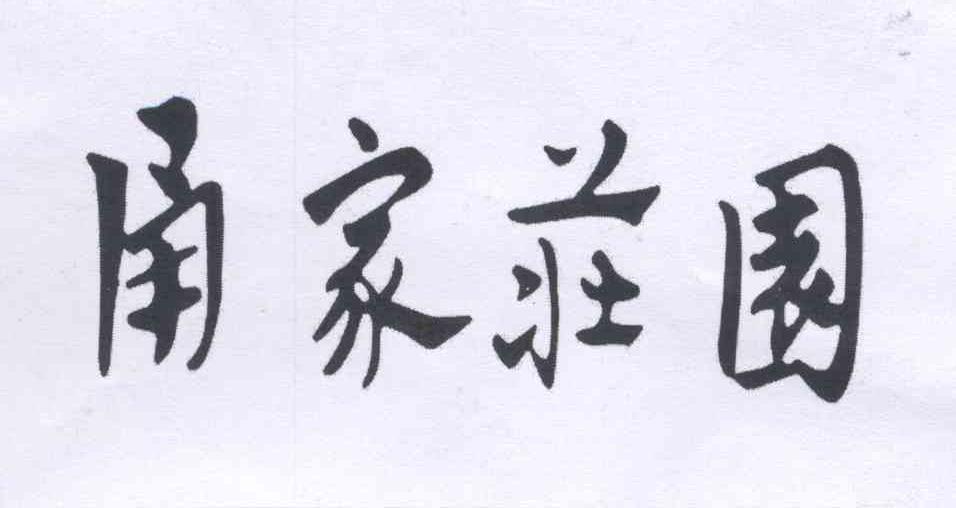 甬家莊園